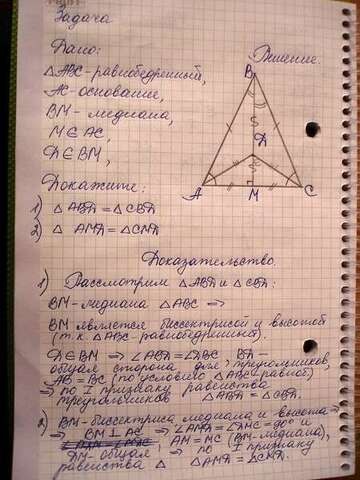 Задача
Дано:
△ABC-равнобедренный,
AC-основание,
BM-медиана,
M∈AC,
D∈BM,
Докажите:
1) △ABD=△CBD
2) △ AMD=△CMD
Решение.
B
D
A
M
C
Доказательство
1) Рассмотрим △ABD и △CBD:
BM-медиана △ABC ⇒
BM является биссектрисой и высотой
(т.к △ABC-равнобедренный).
D∈BM ⇒ ∠ABD=∠DBC BD-
общая сторона треугольников,
AB=BC (по условию △ABC-равноб)
⇒ по I признаку равенства
треугольников △ABD=△CBD.
2) BM-биссектриса медиана и высота ⇒
⇒ BM⊥AC ⇒ ∠AMD=∠DMC=90° и
AM=MC (BM-медиана),
DM-общая ⇒ по I признаку
равенства △ △AMD=△CMD.